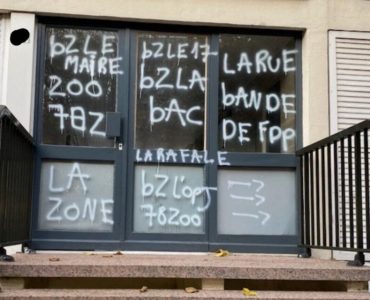 bZLE
MAIRE
200
78Z
bZLE17
bZLA
bAC
LARUE
bANDE
DE FDP
LARAFALE
LA
ZONE
bZL'OPJ
78200